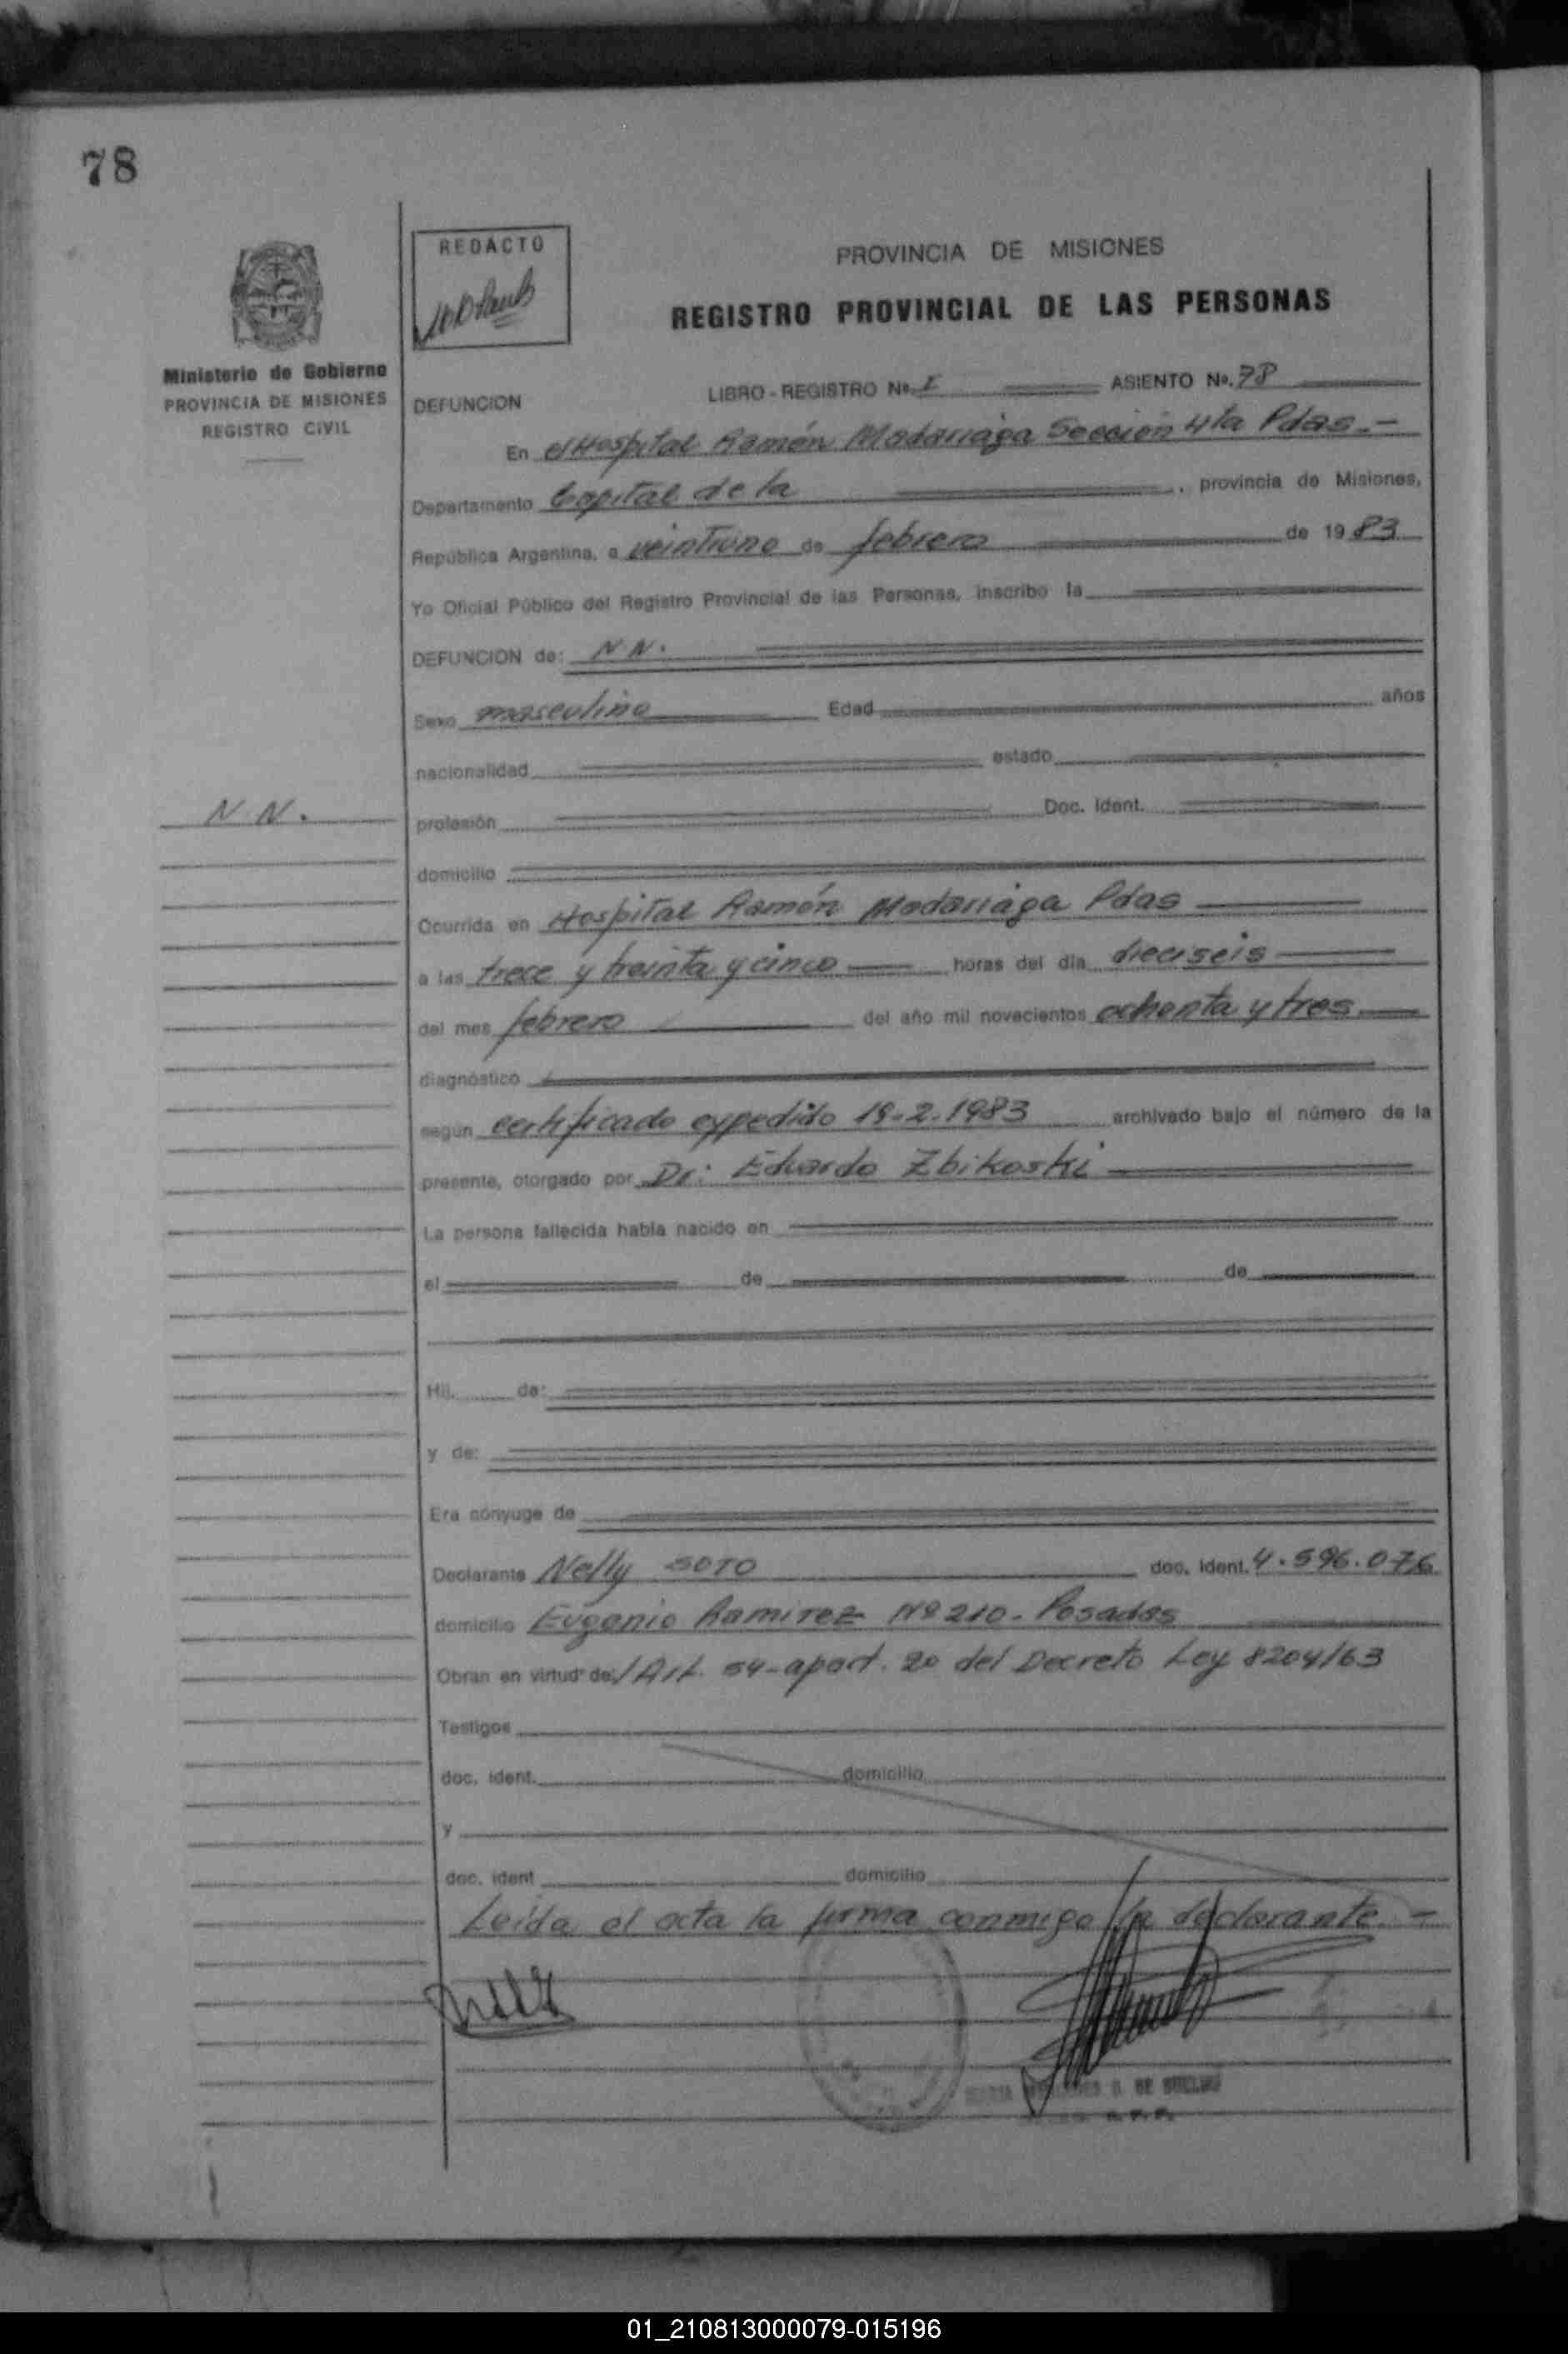 78
REDACTO
PROVINCIA DE MISIONES
REGISTRO PROVINCIAL DE LAS PERSONAS
Ministerio de Gobierno
PROVINCIA DE MISIONES
REGISTRO CIVIL
DEFUNCION LIBRO-REGISTRO Nº. I ASIENTO Nº. 78
En el Hospital Ramón Madariaga Sección 4ta Pdas.-
Departamento Capital de la , provincia de Misiones,
República Argentina, a veintiuno de febrero de 1983
Yo Oficial Público del Registro Provincial de las Personas, inscribo la
DEFUNCION de: N.N.
Sexo masculino Edad años
nacionalidad estado
N.N.
profesión Doc. Ident.
domicilio
Ocurrida en Hospital Ramón Madariaga Pdas
a las trece y treinta y cinco horas del día dieciseis
del mes febrero del año mil novecientos ochenta y tres
diagnóstico
según certificado expedido 19-2-1983 archivado bajo el número de la
presente, otorgado por Dr: Eduardo Zbikoski
La persona fallecida había nacido en
el de de
Hij. de:
y de:
Era cónyuge de
Declarante Nelly SOTO doc. ident. 4.596.076
domicilio Eugenio Ramirez Nº 210- Posadas
Obran en virtud de: Art. 54-apart. 2º del Decreto Ley 8204/63
Testigos
doc. ident. domicilio
y
doc. ident domicilio
Leída el acta la firma conmigo la declarante.-
01_210813000079-015196